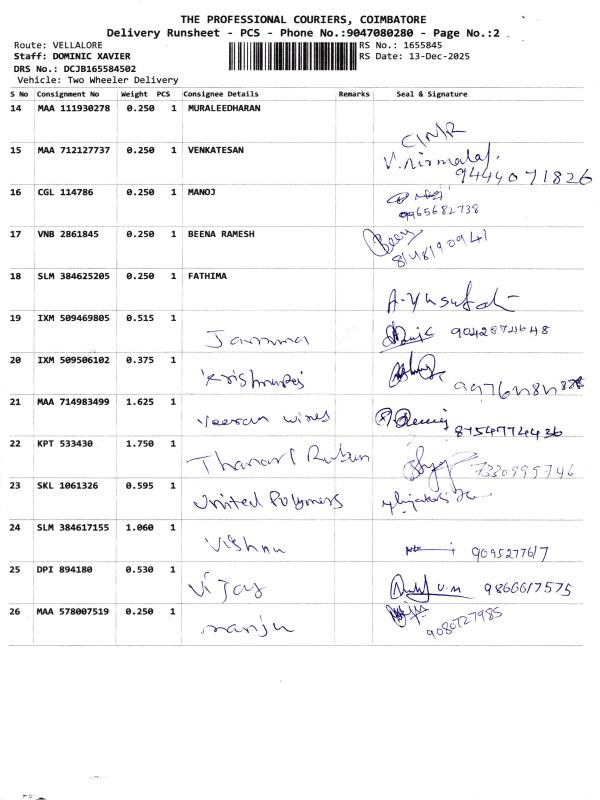 THE PROFESSIONAL COURIERS, COIMBATORE
Delivery Runsheet - PCS - Phone No.:9047080280 - Page No.:2
Route: VELLALORE
RS No.: 1655845
Staff: DOMINIC XAVIER
RS Date: 13-Dec-2025
DRS No.: DCJB165584502
Vehicle: Two Wheeler Delivery
S No Consignment No Weight PCS Consignee Details Remarks Seal & Signature
14 MAA 111930278 0.250 1 MURALEEDHARAN
15 MAA 712127737 0.250 1 VENKATESAN V.Nirmala
9444071826
16 CGL 114786 0.250 1 MANOJ
9965682738
17 VNB 2861845 0.250 1 BEENA RAMESH Beena
8148190941
18 SLM 384625205 0.250 1 FATHIMA
19 IXM 509469805 0.515 1 9042874648
20 IXM 509506102 0.375 1
21 MAA 714983499 1.625 1 Veeran wires 8754774436
22 KPT 533430 1.750 1 7330995746
23 SKL 1061326 0.595 1 United Polymers
24 SLM 384617155 1.060 1 Vishnu 909527767
25 DPI 894180 0.530 1 Vijay 9866617575
26 MAA 578007519 0.250 1 manju 9080727985